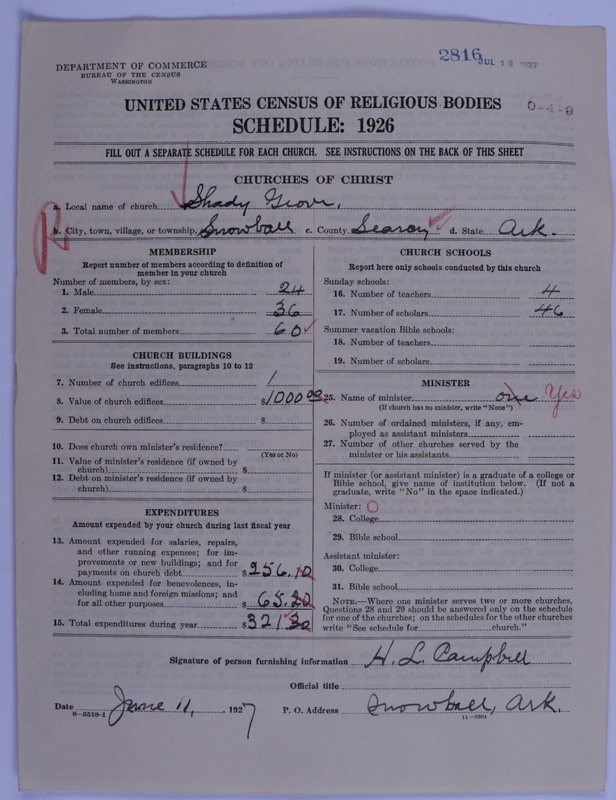 DEPARTMENT OF COMMERCE
BUREAU OF THE CENSUS
WASHINGTON
2816 JUL 19 1927
UNITED STATES CENSUS OF RELIGIOUS BODIES
0-4-9
SCHEDULE: 1926
FILL OUT A SEPARATE SCHEDULE FOR EACH CHURCH. SEE INSTRUCTIONS ON THE BACK OF THIS SHEET
CHURCHES OF CHRIST
a. Local name of church Shady Grove,
b. City, town, village, or township, Snowball c. County Searcy d. State Ark.
R
MEMBERSHIP
Report number of members according to definition of
member in your church
Number of members, by sex:
1. Male 24
2. Female 36
3. Total number of members 60
CHURCH BUILDINGS
See instructions, paragraphs 10 to 12
7. Number of church edifices 1
8. Value of church edifices $1000 00
9. Debt on church edifices $
10. Does church own minister's residence?
(Yes or No)
11. Value of minister's residence (if owned by
church) $
12. Debt on minister's residence (if owned by
church) $
EXPENDITURES
Amount expended by your church during last fiscal year
13. Amount expended for salaries, repairs,
and other running expenses; for im-
provements or new buildings; and for
payments on church debt $256.10
14. Amount expended for benevolences, in-
cluding home and foreign missions; and
for all other purposes $65.20
15. Total expenditures during year $321 30
CHURCH SCHOOLS
Report here only schools conducted by this church
Sunday schools:
16. Number of teachers 4
17. Number of scholars 46
Summer vacation Bible schools:
18. Number of teachers
19. Number of scholars
MINISTER
25. Name of minister one Yes
(If church has no minister, write "None")
26. Number of ordained ministers, if any, em-
ployed as assistant ministers
27. Number of other churches served by the
minister or his assistants
If minister (or assistant minister) is a graduate of a college or
Bible school, give name of institution below. (If not a
graduate, write "No" in the space indicated.)
Minister: O
28. College
29. Bible school
Assistant minister:
30. College
31. Bible school
NOTE.—Where one minister serves two or more churches,
Questions 28 and 29 should be answered only on the schedule
for one of the churches; on the schedules for the other churches
write "See schedule for church."
Signature of person furnishing information H. L. Campbell
Official title
Date June 11, , 1927 P. O. Address Snowball, Ark.
8—5518-1 11—9204